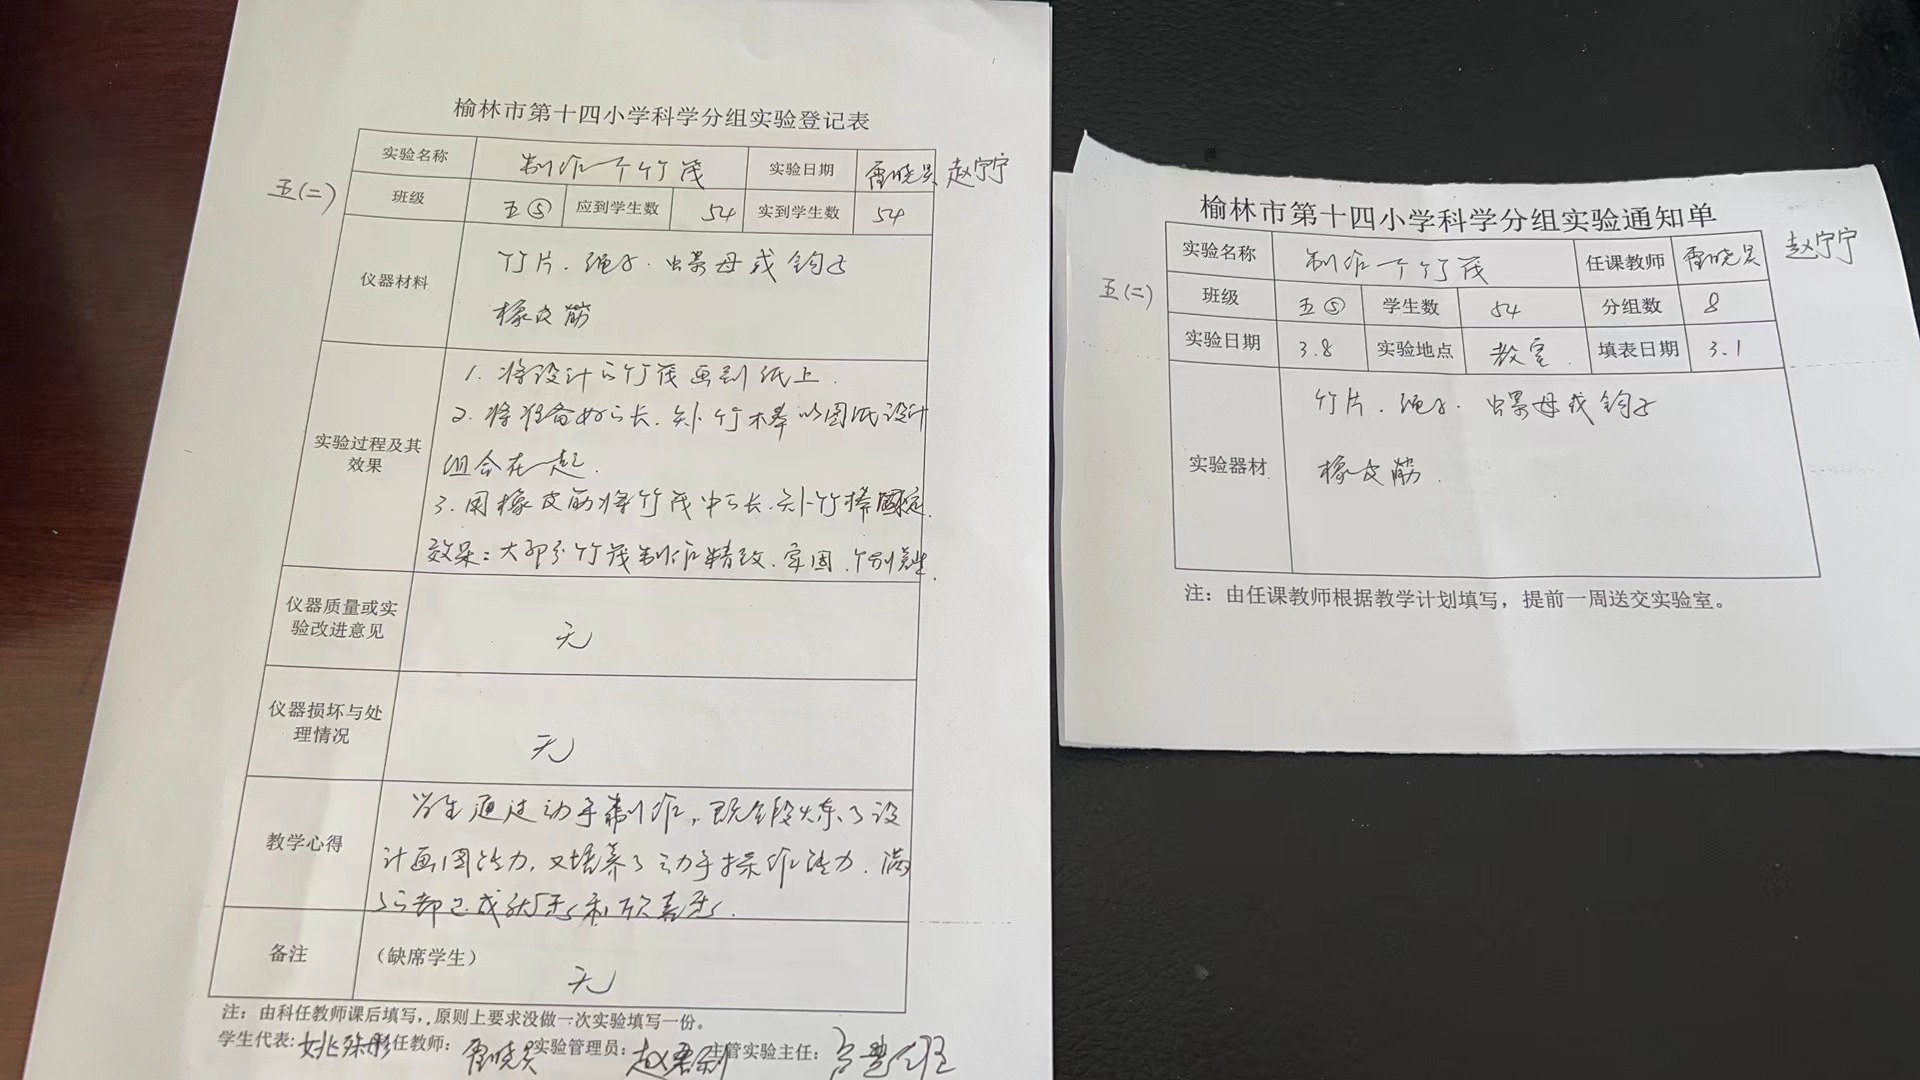 榆林市第十四小学科学分组实验登记表
实验名称 制作一个竹茂 实验日期 雷晓昊 赵宁宁
五(二)
班级 五⑤ 应到学生数 54 实到学生数 54
仪器材料
竹片. 绳子. 螺母或钩子
橡皮筋
实验过程及其效果
1. 将设计的竹茂画到纸上.
2. 将准备好的长. 短竹棒以图纸设计
组合在一起.
3. 用橡皮筋将竹茂中的长. 短竹棒固定.
效果: 大部分竹茂制作精致. 牢固. 个别差些.
仪器质量或实验改进意见
无
仪器损坏与处理情况
无
教学心得
学生通过动手制作, 既锻炼了设
计画图能力, 又培养了动手操作能力. 满
满的都是成就感和欣喜感.
备注 (缺席学生)
无
注：由科任教师课后填写，原则上要求没做一次实验填写一份。
学生代表: 任教师: 雷晓昊 实验管理员: 主管实验主任:
榆林市第十四小学科学分组实验通知单
实验名称 制作一个竹茂 任课教师 雷晓昊 赵宁宁
五(二)
班级 五⑤ 学生数 54 分组数 8
实验日期 3.8 实验地点 教室. 填表日期 3.1
实验器材
竹片. 绳子. 螺母或钩子
橡皮筋.
注：由任课教师根据教学计划填写，提前一周送交实验室。